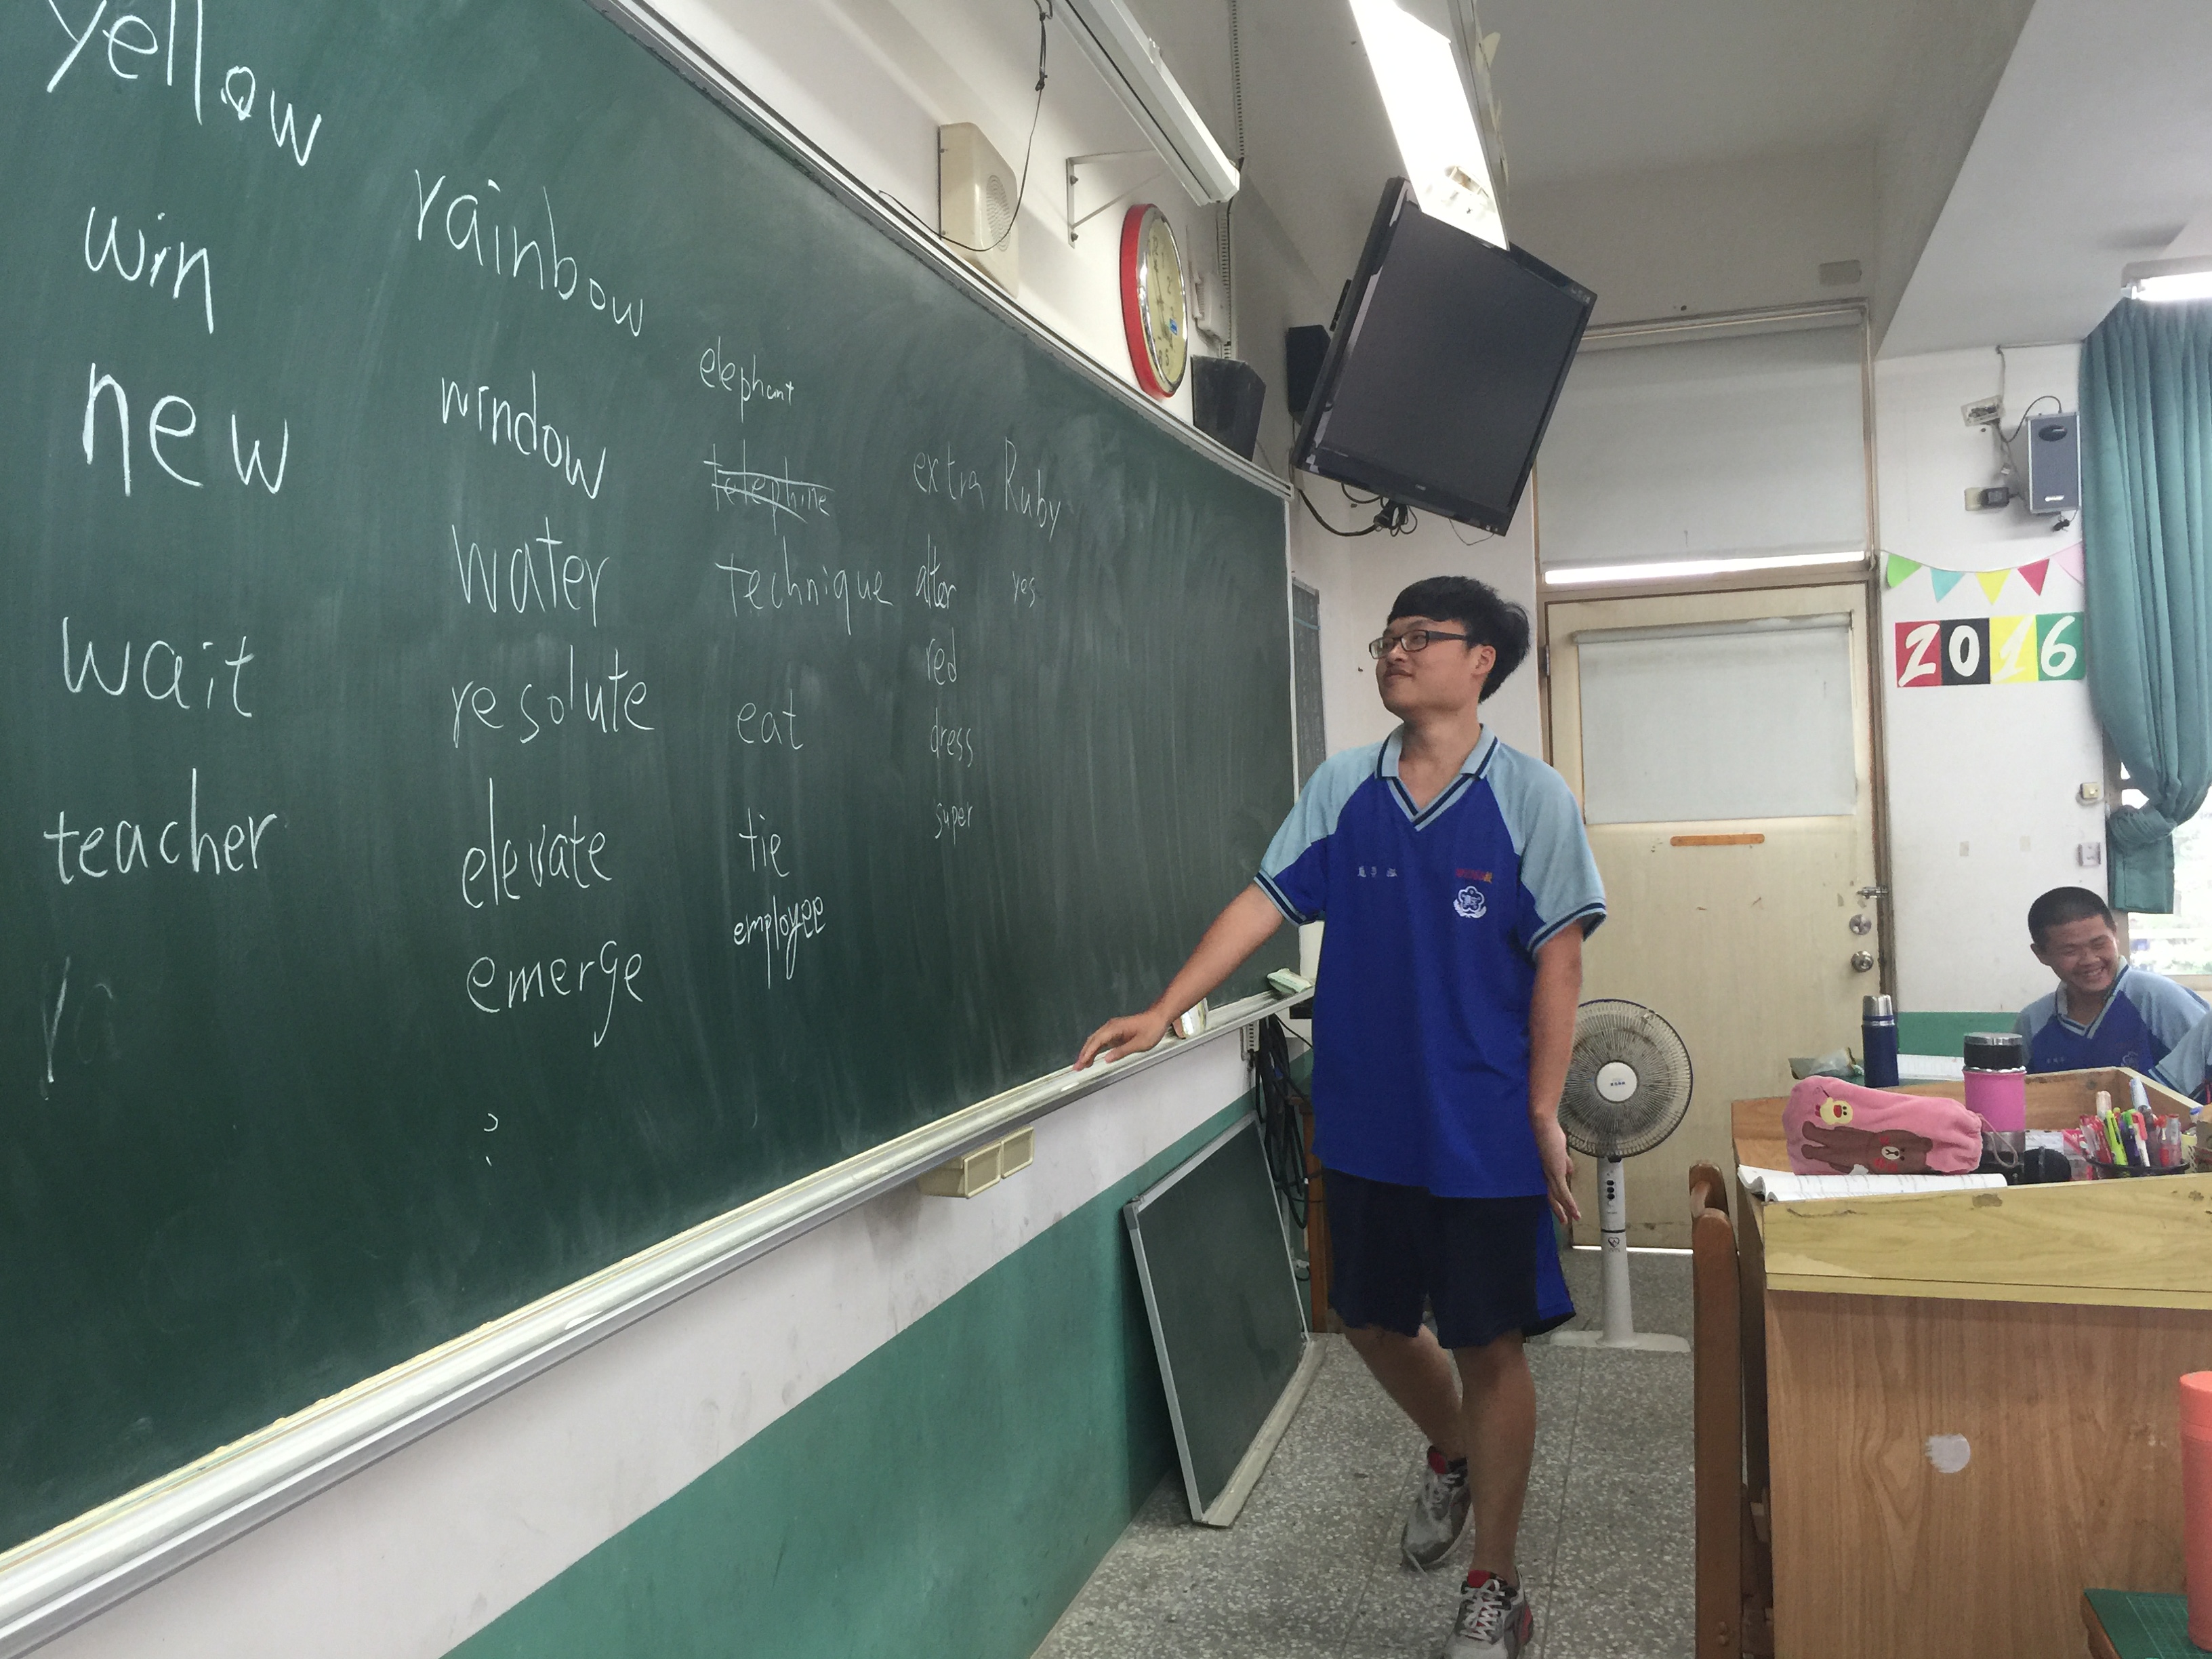 yellow
win
new
wait
teacher
rainbow
window
water
resolute
elevate
emerge
?
elephant
telephine
technique
eat
tie
employee
extra
after
red
dress
super
Ruby
yes
2016